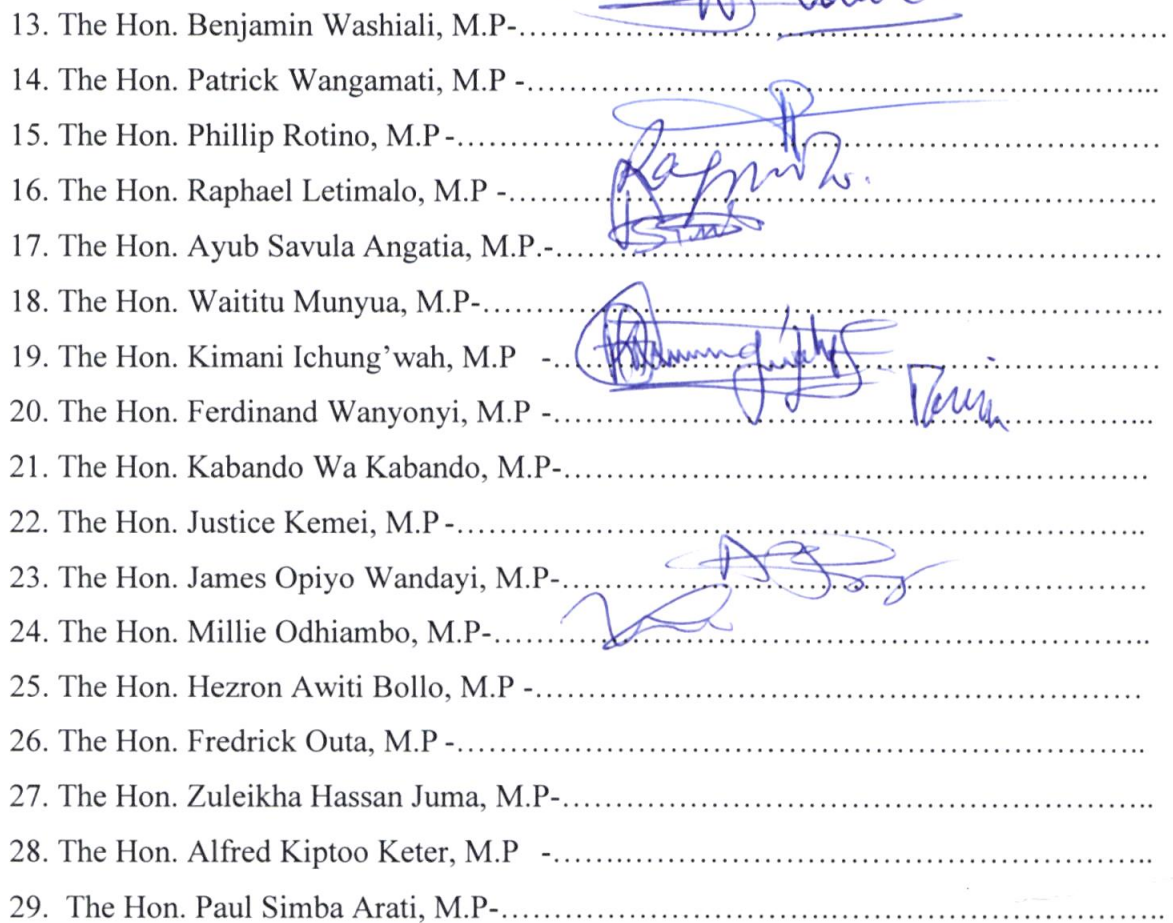 13. The Hon. Benjamin Washiali, M.P-……………………………………………………………
14. The Hon. Patrick Wangamati, M.P -……………………………………………………………
15. The Hon. Phillip Rotino, M.P-……………………………………………………………
16. The Hon. Raphael Letimalo, M.P -……………………………………………………………
17. The Hon. Ayub Savula Angatia, M.P.-……………………………………………………………
18. The Hon. Waititu Munyua, M.P-……………………………………………………………
19. The Hon. Kimani Ichung’wah, M.P -……………………………………………………………
20. The Hon. Ferdinand Wanyonyi, M.P -……………………………………………………………
21. The Hon. Kabando Wa Kabando, M.P-……………………………………………………………
22. The Hon. Justice Kemei, M.P-……………………………………………………………
23. The Hon. James Opiyo Wandayi, M.P-……………………………………………………………
24. The Hon. Millie Odhiambo, M.P-……………………………………………………………
25. The Hon. Hezron Awiti Bollo, M.P -……………………………………………………………
26. The Hon. Fredrick Outa, M.P-……………………………………………………………
27. The Hon. Zuleikha Hassan Juma, M.P-……………………………………………………………
28. The Hon. Alfred Kiptoo Keter, M.P -……………………………………………………………
29. The Hon. Paul Simba Arati, M.P-……………………………………………………………